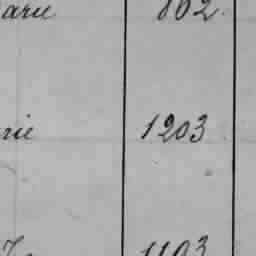 arie 802
rie 1203
1103